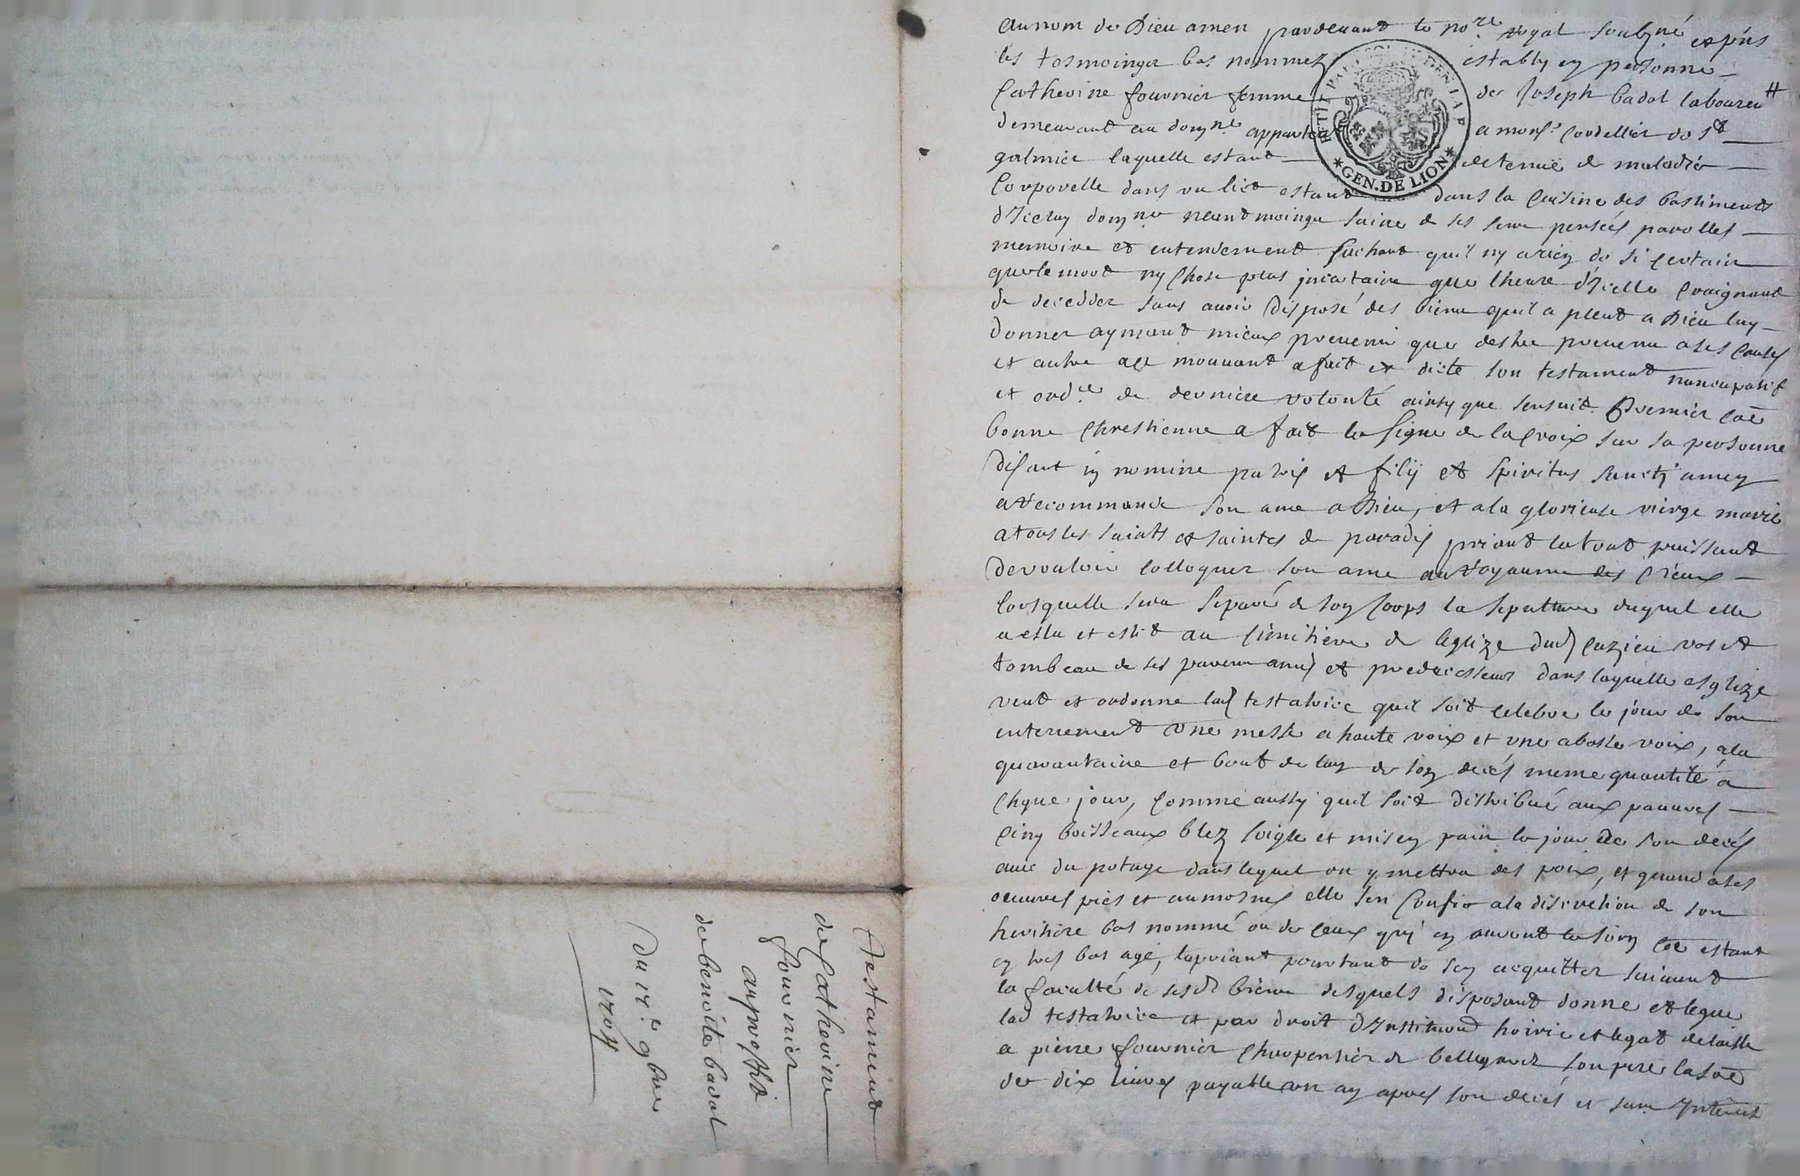 Au nom de Dieu amen pardevant le no.re royal soubz.né et pns
les tesmoings bas nommez establly en personne
Catherine fournier femme de Joseph badol laboureu
demeurant au dom.ne appartent a mons.r Cordellier de S.t
galmier laquelle estant detenue de maladie
Corporelle dans un lict estant dans la Cuisine des bastiments
d'Iceluy dom.ne neantmoingz saine de ses sens pensées parolles
memoire et entendement Sachant qu'il ny a rien de si certain
que la mort ny Chose plus incertaine que lheure d'Icelle Craignant
de decedder sans avoir disposé des biens quil a pleut a Dieu luy
donner aymant mieux prevenir que destre prevenue a ses Causes
et autre ace mouvant a fait et dicté son testament nuncupatif
et ord.ce de derniere volonté ainsy que sensuit Premier Coe
bonne Chrestienne a fait le signe de la Croix sur sa personne
disant in nomine patris et filij et spiritus sancti amen
a recommandé son ame a Dieu, et a la glorieuse vierge marie
a tous les saints et saintes de paradis priant le tout puissant
de vouloir colloquer son ame au royaume des Cieux
lorsquelle sera separé de son Corps la sepulture duquel elle
a eslu et eslit au Cimitiere de leglize dud Cuzieu vas et
tombeau de ses parens amis et predecesseurs dans laquelle esglize
veut et ordonne lad testatrice quil soit celebré le jour de son
enterrement une messe a haute voix et une a basse voix, a la
quarantaine et bout de lan de son deces meme quantité a
Chque jour, Comme aussy quil soit distribué aux pauvres
Cinq boisseaux blez seigle et mis en pain le jour de son deces
avec du potage dans lequel on y mettra des poix, et quand a ses
oeuvres pies et aumosnes elle sen Confie a la discretion de son
heritiere bas nommé ou de Ceux qui en auront le soin Coe estant
en tres bas age, la priant pourtant de sen acquitter suivant
la faculté de sesd biens desquels disposant donne et legue
lad testatrice et par droit d'Institution hoirie et legat delaisse
a pierre fournier Charpentier de bellegarde son pere la soe
de dix livres payable un an apres son deces et sans Interest
Testament
de Catherine
fournier
au proffit
de benoite badol
du 14.e 9bre
1708